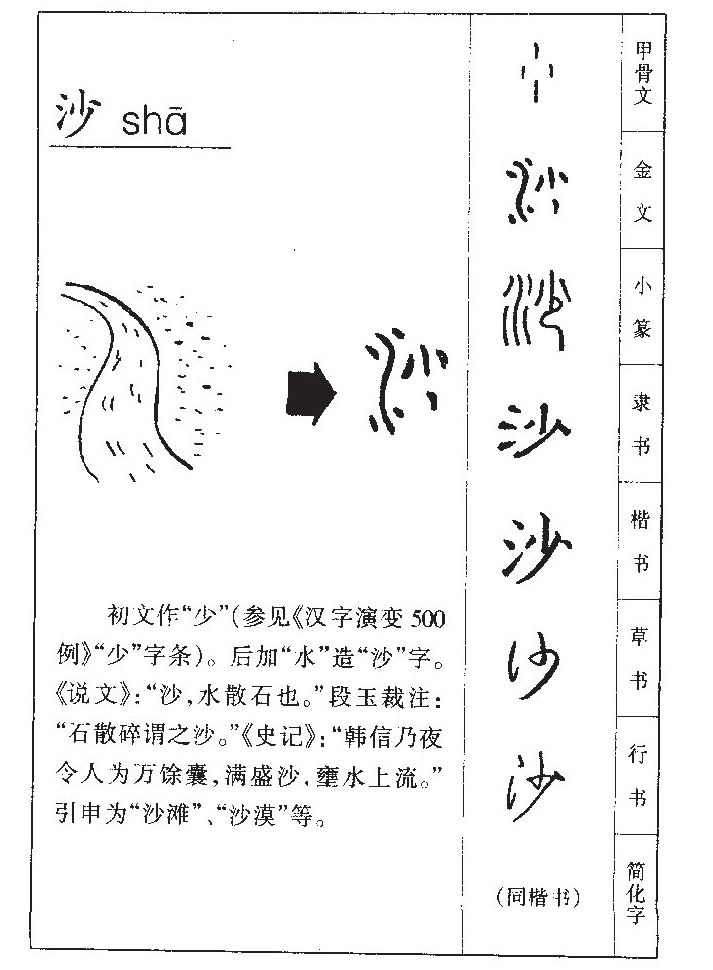 沙 shā
初文作“少”(参见《汉字演变500
例》“少”字条)。后加“水”造“沙”字。
《说文》:“沙,水散石也。”段玉裁注:
“石散碎谓之沙。”《史记》:“韩信乃夜
令人为万馀囊,满盛沙,壅水上流。”
引申为“沙滩”、“沙漠”等。
甲骨文
金文
小篆
隶书
沙
楷书
沙
草书
沙
行书
沙
简化字
(同楷书)